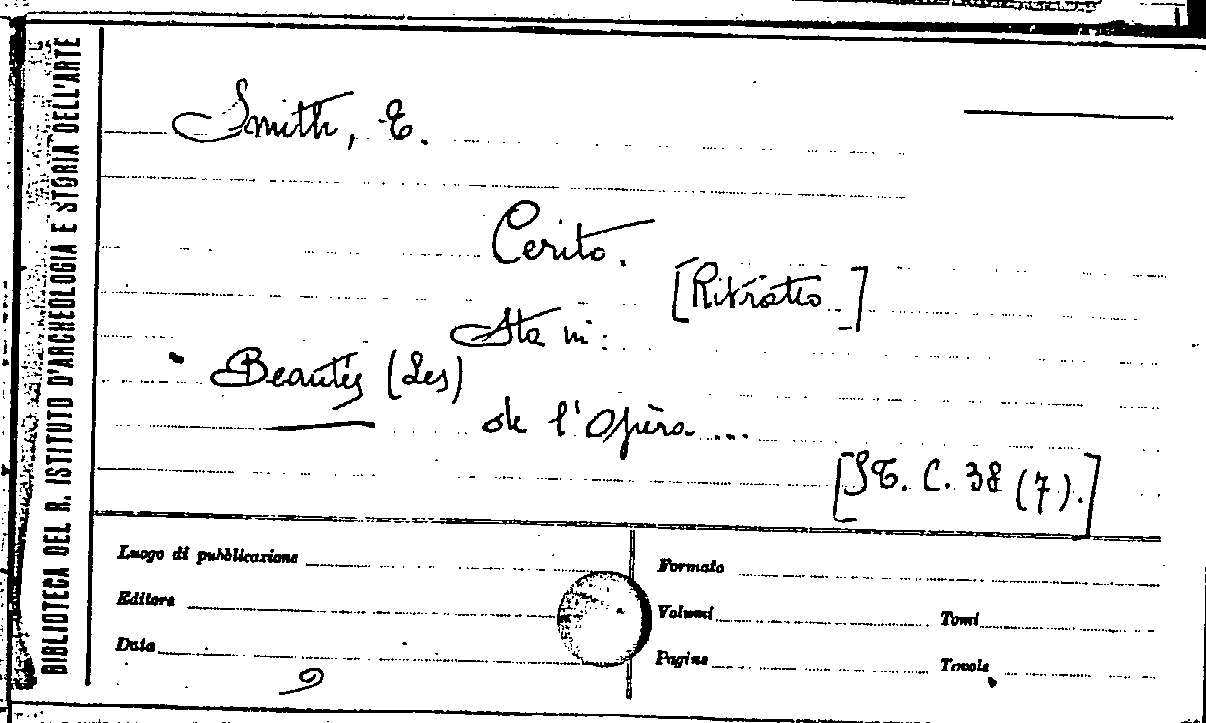 BIBLIOTECA DEL R. ISTITUTO D'ARCHEOLOGIA E STORIA DELL'ARTE
Smith, E.
Cerito.
[Ritratto.]
Sta in:
Beautés (Les)
de l'Opèra...
[ST. C. 38 (7).]
Luogo di pubblicazione
Formato
Editore
Volumi
Tomi
Data
Pagine
Tavole